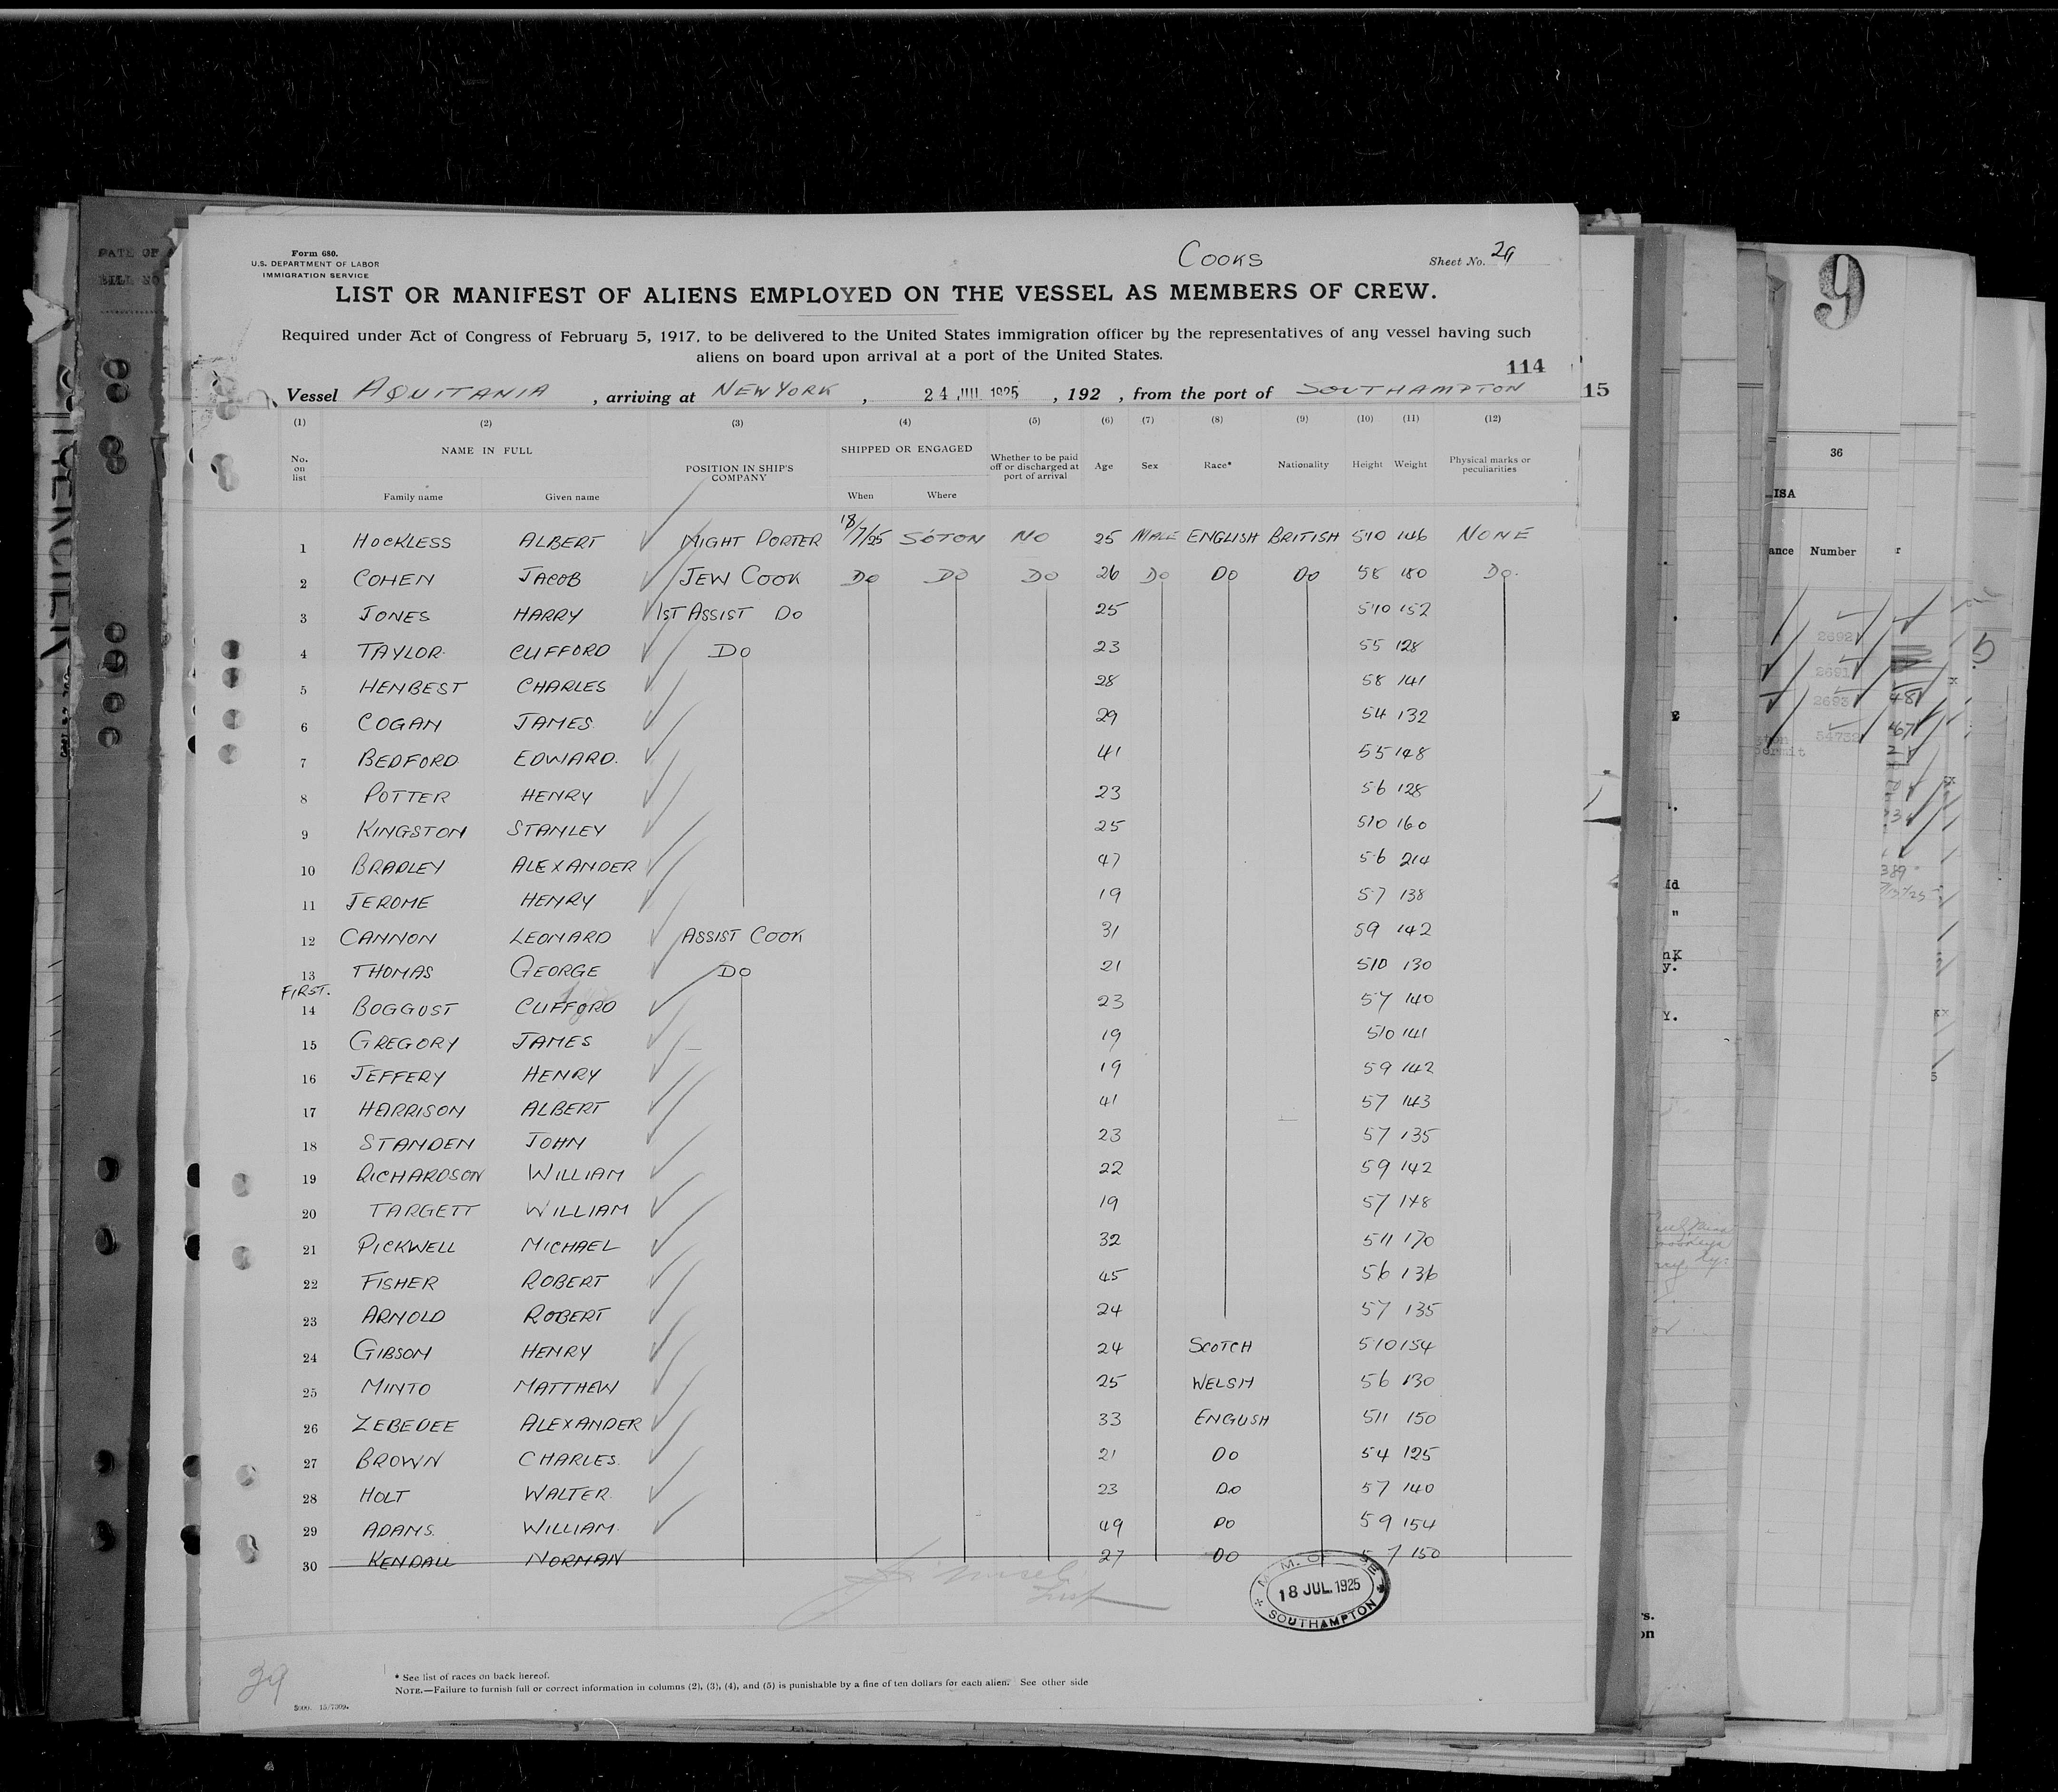 Form 680.
U.S. DEPARTMENT OF LABOR
IMMIGRATION SERVICE
COOKS
Sheet No.
LIST OR MANIFEST OF ALIENS EMPLOYED ON THE VESSEL AS MEMBERS OF CREW.
Required under Act of Congress of February 5, 1917, to be delivered to the United States immigration officer by the representatives of any vessel having such
aliens on board upon arrival at a port of the United States.
114
Vessel AQUITANIA , arriving at NEW YORK , 24 JUL 1925 , 192 , from the port of SOUTHAMPTON
(1) (2) (3) (4) (5) (6) (7) (8) (9) (10) (11) (12)
No. on list NAME IN FULL Family name Given name POSITION IN SHIP'S COMPANY SHIPPED OR ENGAGED When Where Whether to be paid off or discharged at port of arrival Age Sex Race* Nationality Height Weight Physical marks or peculiarities
1 HOCKLESS ALBERT NIGHT PORTER 18/7/25 SOTON NO 25 MALE ENGLISH BRITISH 510 146 NONE
2 COHEN JACOB JEW COOK DO DO DO 26 DO DO DO 58 180 DO.
3 JONES HARRY 1ST ASSIST DO 25 510 152
4 TAYLOR CLIFFORD DO 23 55 128
5 HENBEST CHARLES 28 58 141
6 COGAN JAMES 29 54 132
7 BEDFORD EDWARD. 41 55 148
8 POTTER HENRY 23 56 128
9 KINGSTON STANLEY 25 510 160
10 BRADLEY ALEXANDER 47 56 214
11 JEROME HENRY 19 57 138
12 CANNON LEONARD ASSIST COOK 31 59 142
13 THOMAS GEORGE DO 21 510 130
FIRST.
14 BOGGUST CLIFFORD 23 57 140
15 GREGORY JAMES 19 510 141
16 JEFFERY HENRY 19 59 142
17 HARRISON ALBERT 41 57 143
18 STANDEN JOHN 23 57 135
19 RICHARDSON WILLIAM 22 59 142
20 TARGETT WILLIAM 19 57 148
21 PICKWELL MICHAEL 32 511 170
22 FISHER ROBERT 45 56 136
23 ARNOLD ROBERT 24 57 135
24 GIBSON HENRY 24 SCOTCH 510 154
25 MINTO MATTHEW 25 WELSH 56 130
26 ZEBEDEE ALEXANDER 33 ENGLISH 511 150
27 BROWN CHARLES. 21 DO 54 125
28 HOLT WALTER. 23 DO 57 140
29 ADAMS. WILLIAM. 49 DO 59 154
30 KENDALL NORMAN 27 DO 57 150
18 JUL. 1925
SOUTHAMPTON
39
* See list of races on back hereof.
NOTE.—Failure to furnish full or correct information in columns (2), (3), (4), and (5) is punishable by a fine of ten dollars for each alien. See other side
5000. 15/7509.
15
9
36
ISA
ance Number
2692
2691
2693
54732